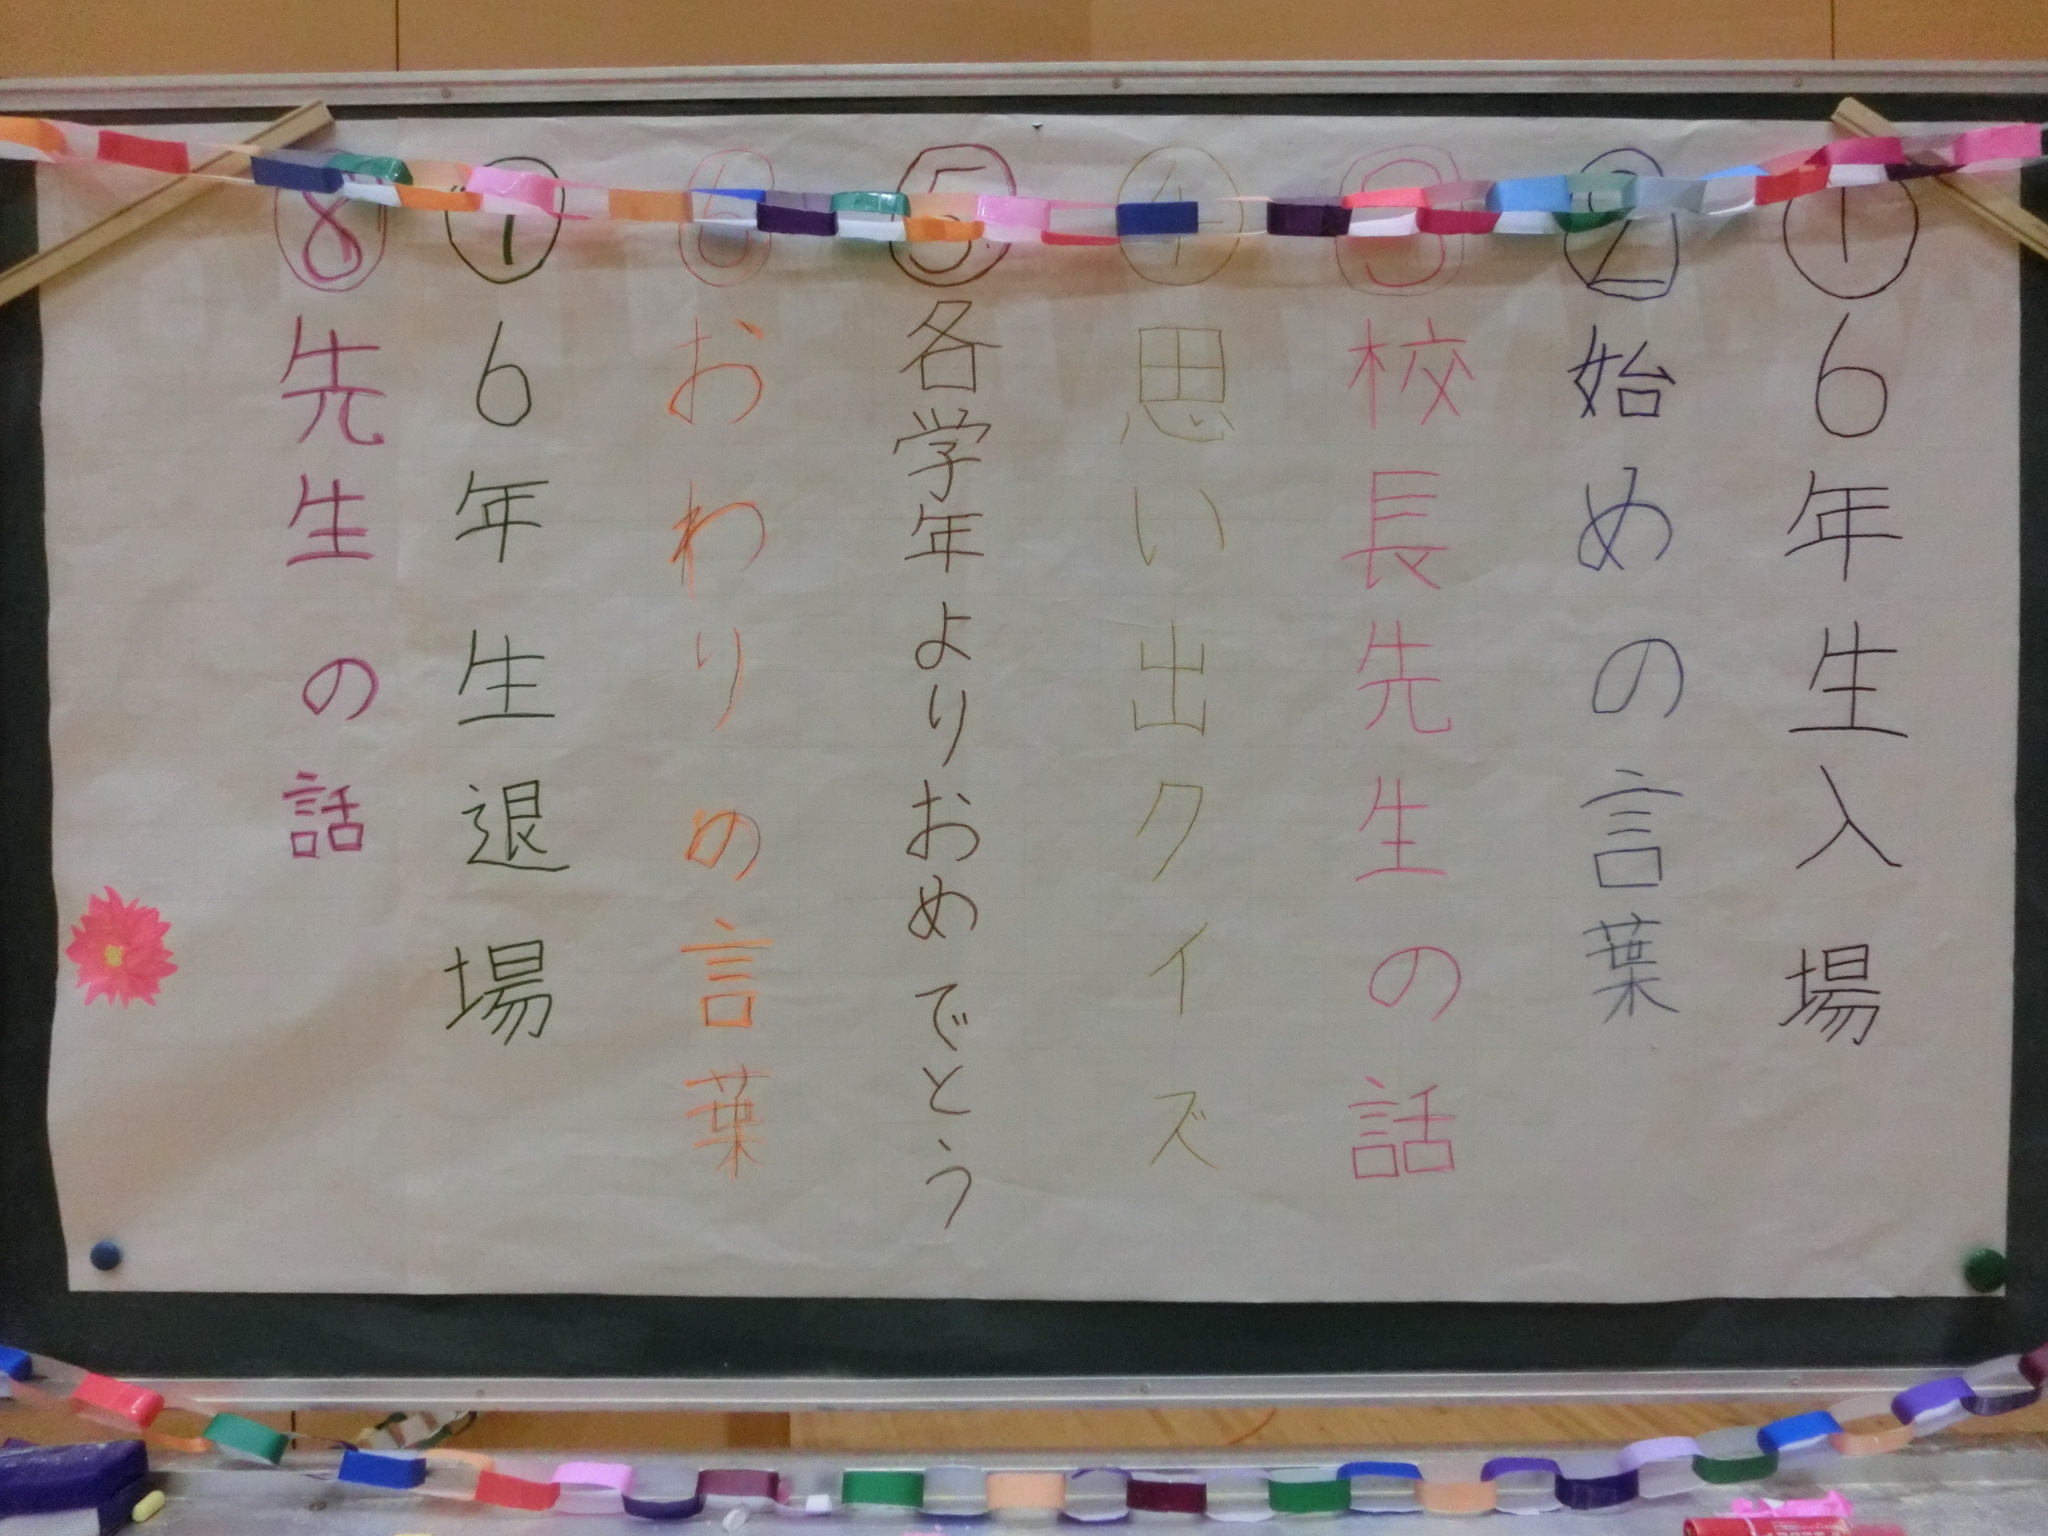 ①6年生入場
②始めの言葉
③校長先生の話
④思い出クイズ
⑤各学年よりおめでとう
⑥おわりの言葉
⑦6年生退場
⑧先生の話